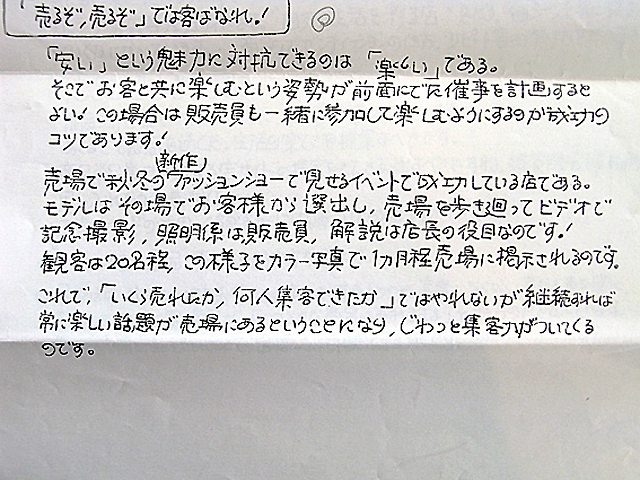 「売るぞ,売るぞ」では客ばなれ!
「安い」という魅力に対抗できるのは「楽しい」である。
そこでお客と共に楽しむという姿勢が前面にでた催事を計画すると
よい!この場合は販売員も一緒に参加して楽しむようにするのが成功の
コツであります!
(新作)
売場で秋・冬のファッションショーで見せるイベントで成功している店である。
モデルはその場でお客様から選出し,売場を歩き廻ってビデオで
記念撮影,照明係は販売員,解説は店長の役目なのです!
観客は20名程,この様子をカラー写真で1カ月程売場に掲示されるのです。
これで,「いくら売れたか,何人集客できたか」ではやれないが継続すれば
常に楽しい話題が売場にあるということになり,じわっと集客力がついてくる
のです。